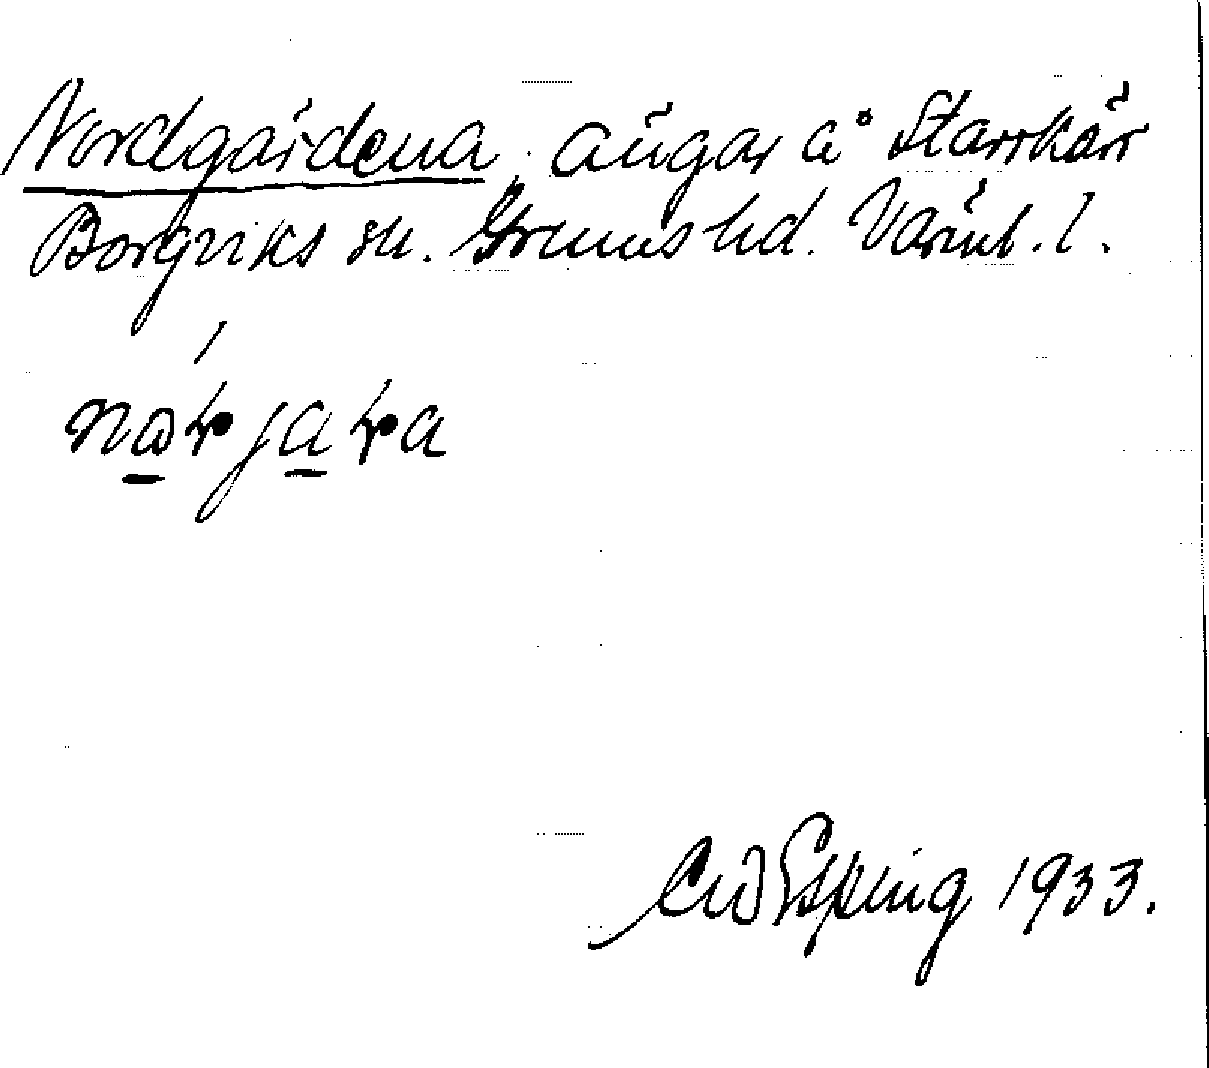 Nordgårdena, ängar å Starrkärr
Borgviks sn. Grums hd. Värml. l.
Espling 1933.